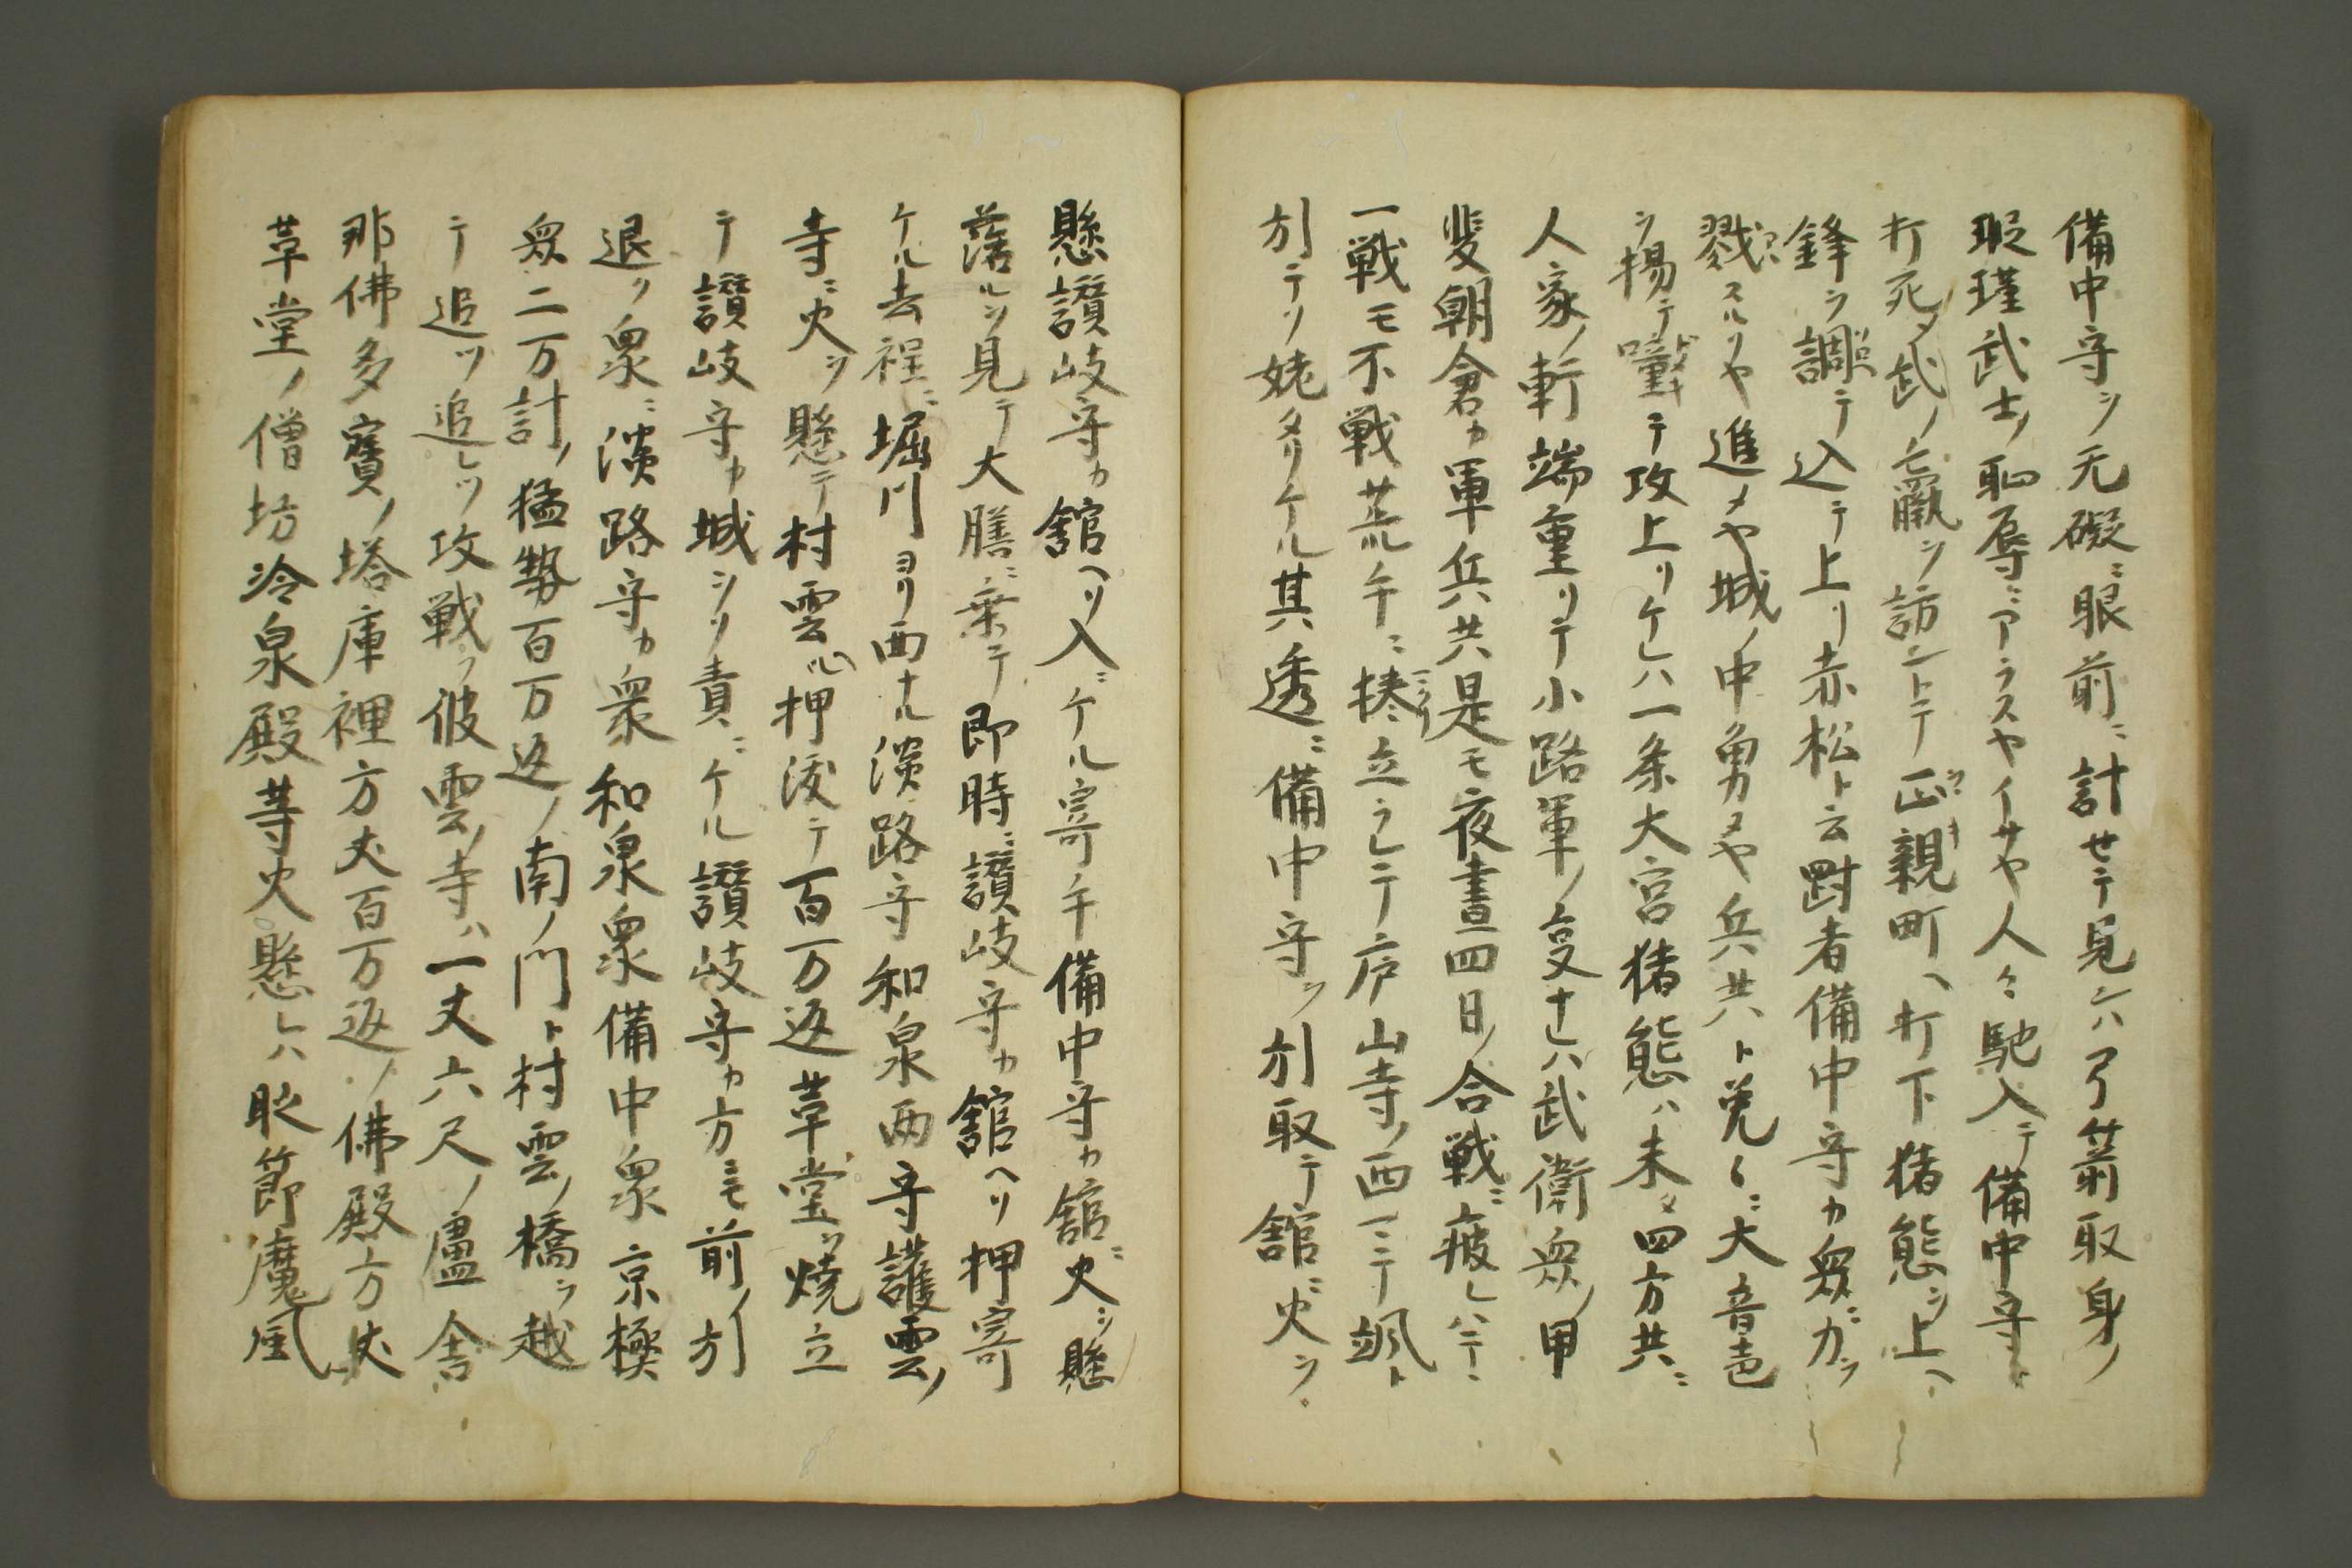 備中守ヲ无礙ニ眼前ニ計セテ見ンハ弓箭取身ノ
瑕瑾武士ノ恥辱ニアラスヤイサヤ人々馳入テ備中守ト
打死メ武ノ亡職ヲ訪ントテ正親町ヘ打下猪熊ヲ上ヘ
鋒ヲ調テ込テ上リ赤松ト云曁者備中守カ衆ニガヲ
戮スルヤ進メヤ城ノ中勇メヤ兵共ト党々ニ大音声
ヲ揚テ囃テ攻上リケレハ一条大宮猪熊ハ未タ四方共ニ
人家ノ軒端重リテ小路軍ノ亨ナレハ武衛衆ノ甲
斐朝倉カ軍兵共是モ夜昼四日ノ合戦ニ疲レハテニ
一戦モ不戦荒午ニ捲立ラレテ芦山寺ノ西ニテ颯ト
引テソ姥タリケル其透ニ備中守ヲ引取テ舘ニ火ヲ
懸讃岐守カ舘ヘソ入ニケル寄手備中守カ舘ニ火ヲ懸
落ルヲ見テ大膳ニ乗テ即時ニ讃岐守カ舘ヘソ押寄
ケル去程ニ堀川ヨリ西ナル淡路守和泉両守護雲ノ
寺ニ火ヲ懸テ村雲ニ押渡テ百万返革堂ヲ焼立
テ讃岐守カ城ヲソ責ニケル讃岐守カ方ニモ前ノ引
退ク衆ニ淡路守カ衆和泉衆備中衆京極
衆二万計ノ猛勢百万返ノ南ノ門ト村雲ノ橋ヲ越
テ追ツ追レツ攻戦フ彼雲ノ寺ハ一丈六尺ノ盧舎
那佛多寳ノ塔庫裡方丈百万返ノ佛殿方丈
革堂ノ僧坊冷泉殿等火懸レハ眤節魔風